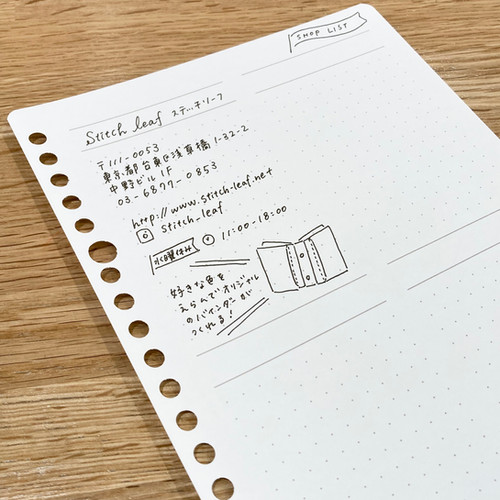 SHOP LIST
Stitch leaf ステッチリーフ
〒111-0053
東京都台東区浅草橋1-32-2
中野ビル1F
03-6877-0853
http://www.stitch-leaf.net
stitch_leaf
水曜休み 11:00-18:00
好きな色を
えらんでオリジナル
のバインダーが
つくれる!